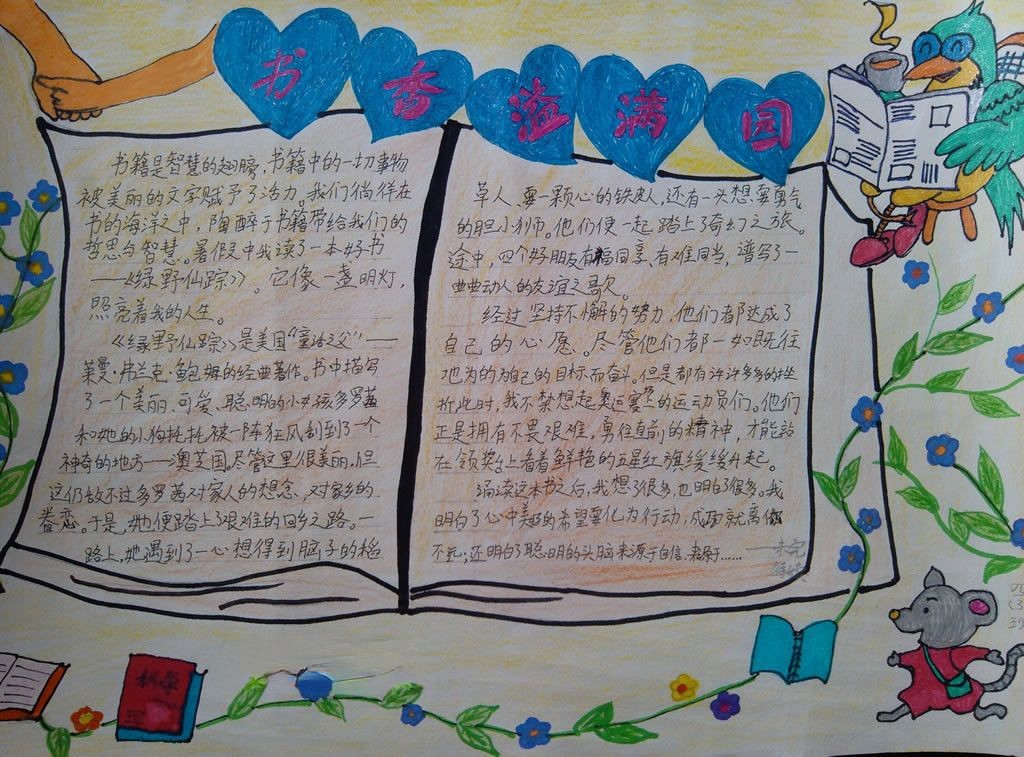 书香溢满园
书籍是智慧的翅膀,书籍中的一切事物
被美丽的文字赋予了活力。我们徜徉在
书的海洋之中,陶醉于书籍带给我们的
哲思与智慧。暑假中我读了一本好书
——《绿野仙踪》。它像一盏明灯,
照亮着我的人生。
《绿野仙踪》是美国“童话之父”——
莱曼·弗兰克·鲍姆的经典著作。书中描写
了一个美丽、可爱、聪明的小女孩多罗茜
和她的小狗托托被一阵狂风刮到了一个
神奇的地方——澳芝国,尽管这里很美丽,但
这仍敌不过多罗茜对家人的想念,对家乡的
眷恋。于是,她便踏上了艰难的回乡之路。一
路上,她遇到了一心想得到脑子的稻
草人、要一颗心的铁皮人,还有一头想要勇气
的胆小狮。他们便一起踏上了奇幻之旅。
途中,四个好朋友有福同享、有难同当,谱写了一
曲曲动人的友谊之歌。
经过坚持不懈的努力,他们都达成了
自己的心愿。尽管他们都一如既往
地为的为自己的目标而奋斗。但是都有许许多多的挫
折此时,我不禁想起奥运赛上的运动员们。他们
正是拥有不畏艰难,勇往直前的精神,才能站
在领奖台上看着鲜艳的五星红旗缓缓升起。
诵读这本书之后,我想了很多,也明白了很多。我
明白了心中美好的希望要化为行动,成功就离你
不远;还明白了聪明的头脑来源于自信、来源于……
——未完
待续
科学